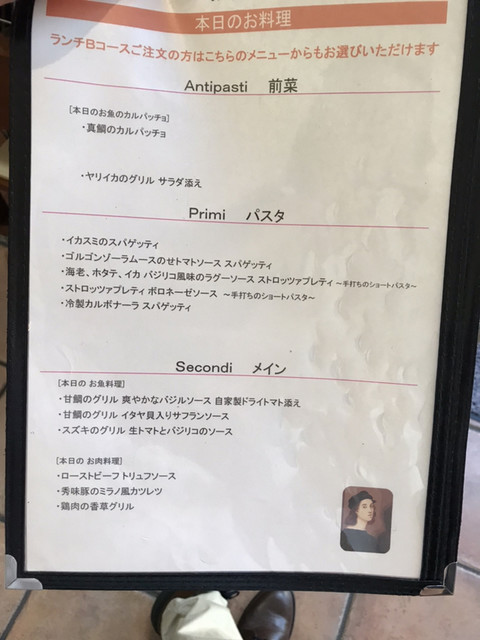 本日のお料理
ランチBコースご注文の方はこちらのメニューからもお選びいただけます
Antipasti 前菜
[本日のお魚のカルパッチョ]
・真鯛のカルパッチョ
・ヤリイカのグリル サラダ添え
Primi パスタ
・イカスミのスパゲッティ
・ゴルゴンゾーラムースのせトマトソース スパゲッティ
・海老、ホタテ、イカ バジリコ風味のラグーソース ストロッツァプレティ ～手打ちのショートパスタ～
・ストロッツァプレティ ボロネーゼソース ～手打ちのショートパスタ～
・冷製カルボナーラ スパゲッティ
Secondi メイン
[本日の お魚料理]
・甘鯛のグリル 爽やかなバジルソース 自家製ドライトマト添え
・甘鯛のグリル イタヤ貝入りサフランソース
・スズキのグリル 生トマトとバジリコのソース
[本日の お肉料理]
・ローストビーフ トリュフソース
・秀味豚のミラノ風カツレツ
・鶏肉の香草グリル